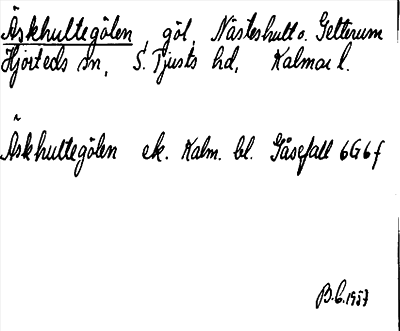 Äskhultegölen, göl, Nästeshult o. Getterum
Hjorteds sn, S. Tjusts hd, Kalmar l.
Äskhultegölen ek. Kalm. bl. Gåsefall 6G6f
B.C. 1957